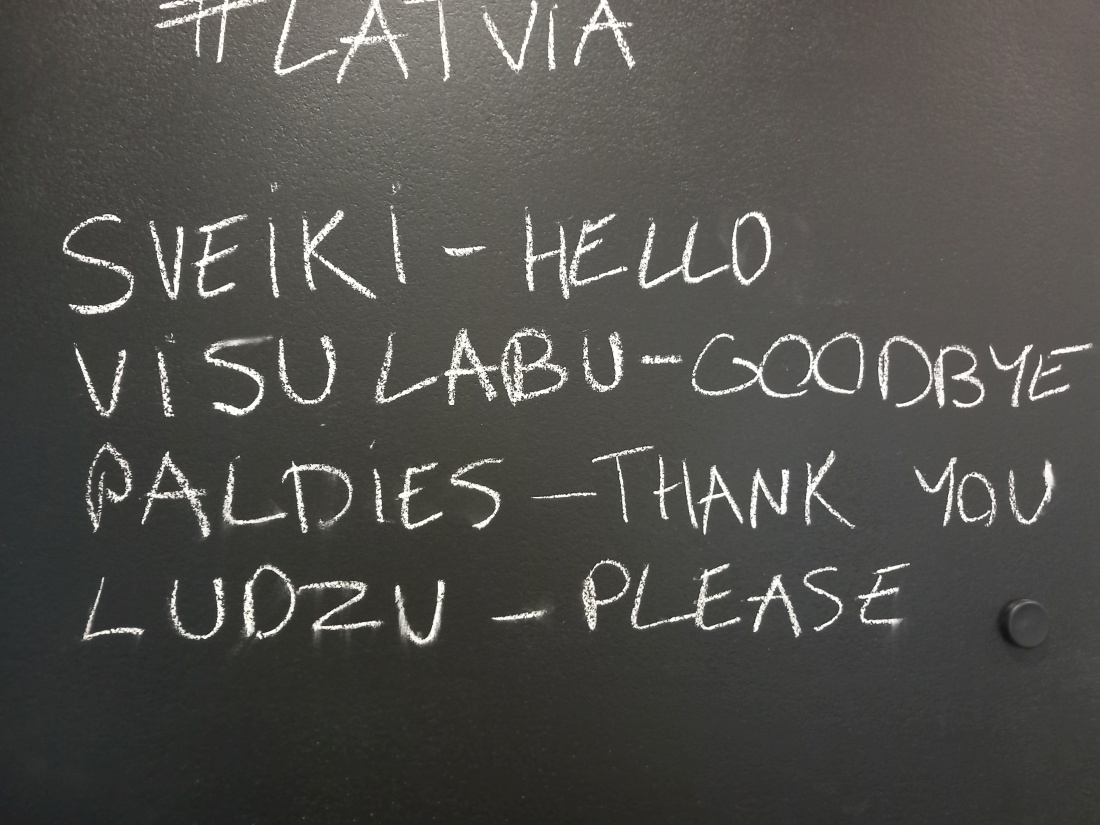 #LATVIA
SVEIKI - HELLO
VISU LABU - GOODBYE
PALDIES - THANK YOU
LUDZU - PLEASE